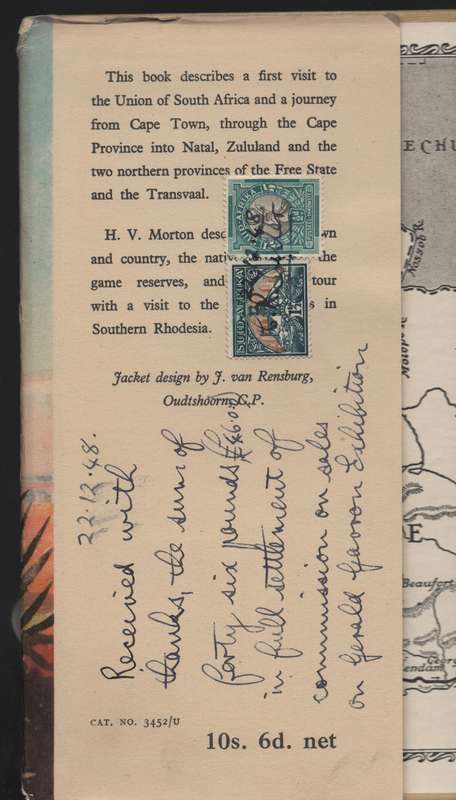 This book describes a first visit to
the Union of South Africa and a journey
from Cape Town, through the Cape
Province into Natal, Zululand and the
two northern provinces of the Free State
and the Transvaal.
H. V. Morton
and country, the
game reserves, and tour
with a visit to the in
Southern Rhodesia.
Jacket design by J. van Rensburg,
Oudtshoorn, C.P.
SUID-AFRIKA
22.12.48.
Received with
thanks, the sum of
forty six pounds (£46.0.0)
in full settlement of
commission on sales
on Gerald Exhibition
CAT. NO. 3452/U
10s. 6d. net
ECHU
NOSSOB R.
MOLOPO R.
E
Beaufort
Georg
endam